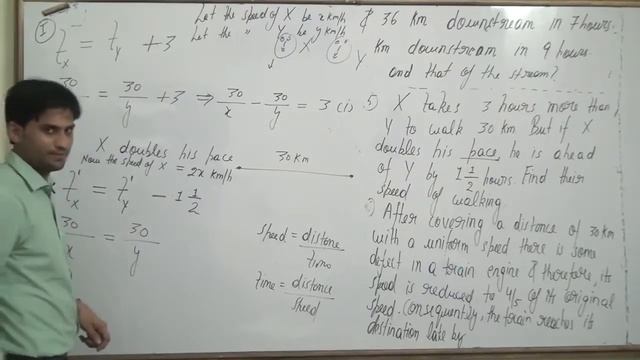 (I)
Let the speed of X be x km/h
Let the " Y be y km/h
t_x = t_y + 3
X Y
30/x = 30/y + 3 ⇒ 30/x - 30/y = 3 (i)
X doubles his pace
Now the speed of X = 2x km/h
30 km
t'_x = t'_y - 1 1/2
30/x = 30/y
speed = distance/time
Time = distance/speed
& 36 km downstream in 7 hours.
km downstream in 9 hours
and that of the stream?
5) X takes 3 hours more than
Y to walk 30 km But if X
doubles his pace, he is ahead
of Y by 1 1/2 hours. Find their
speed of walking.
After covering a distance of 30 km
with a uniform speed there is some
defect in a train engine & therefore, its
speed is reduced to 4/5 of its original
speed. Consequently, the train reaches its
destination late by